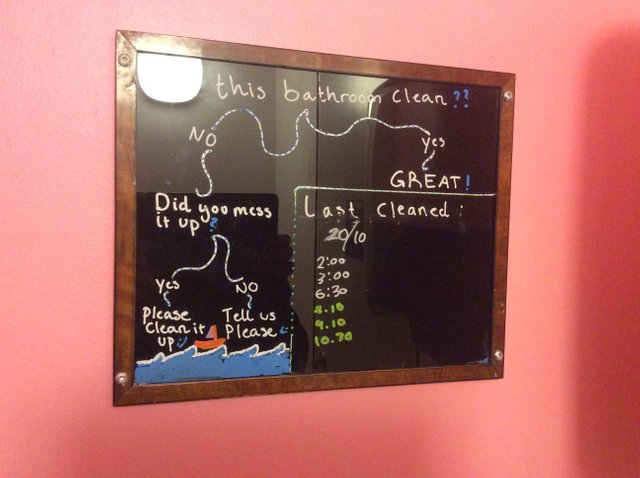 this bathroom clean??
NO
Yes
GREAT!
Did you mess
it up?
Yes
NO
Please
clean it
up :)
Tell us
Please
Last cleaned:
20/10
2:00
3:00
6:30
8.10
9.10